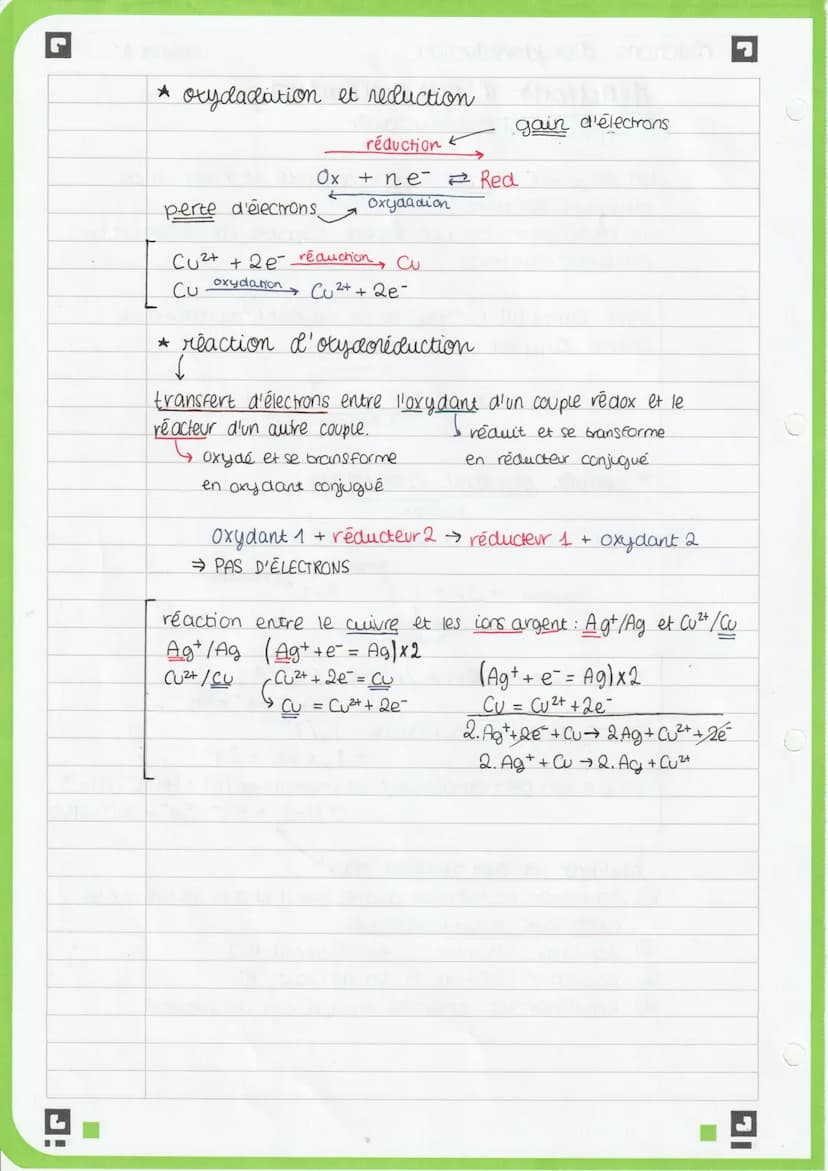 ★ oxydadation et reduction
gain d'électrons
réduction
Ox + ne⁻ ⇄ Red
oxydadion
perte d'électrons
Cu²⁺ + 2e⁻ réduction → Cu
Cu oxydation → Cu²⁺ + 2e⁻
★ réaction d'oxydoréduction
transfert d'électrons entre l'oxydant d'un couple rédox et le
réacteur d'un autre couple.
réduit et se transforme
en réducteur conjugué
oxydé et se transforme
en oxydant conjugué
oxydant 1 + réducteur 2 → réducteur 1 + oxydant 2
⇒ PAS D'ÉLECTRONS
réaction entre le cuivre et les ions argent : Ag⁺/Ag et Cu²⁺/Cu
Ag⁺/Ag (Ag⁺ + e⁻ = Ag)x2
Cu²⁺/Cu Cu²⁺ + 2e⁻ = Cu
Cu = Cu²⁺ + 2e⁻
(Ag⁺ + e⁻ = Ag)x2
Cu = Cu²⁺ + 2e⁻
2.Ag⁺ + 2e⁻ + Cu → 2Ag + Cu²⁺ + 2e⁻
2.Ag⁺ + Cu → 2.Ag + Cu²⁺